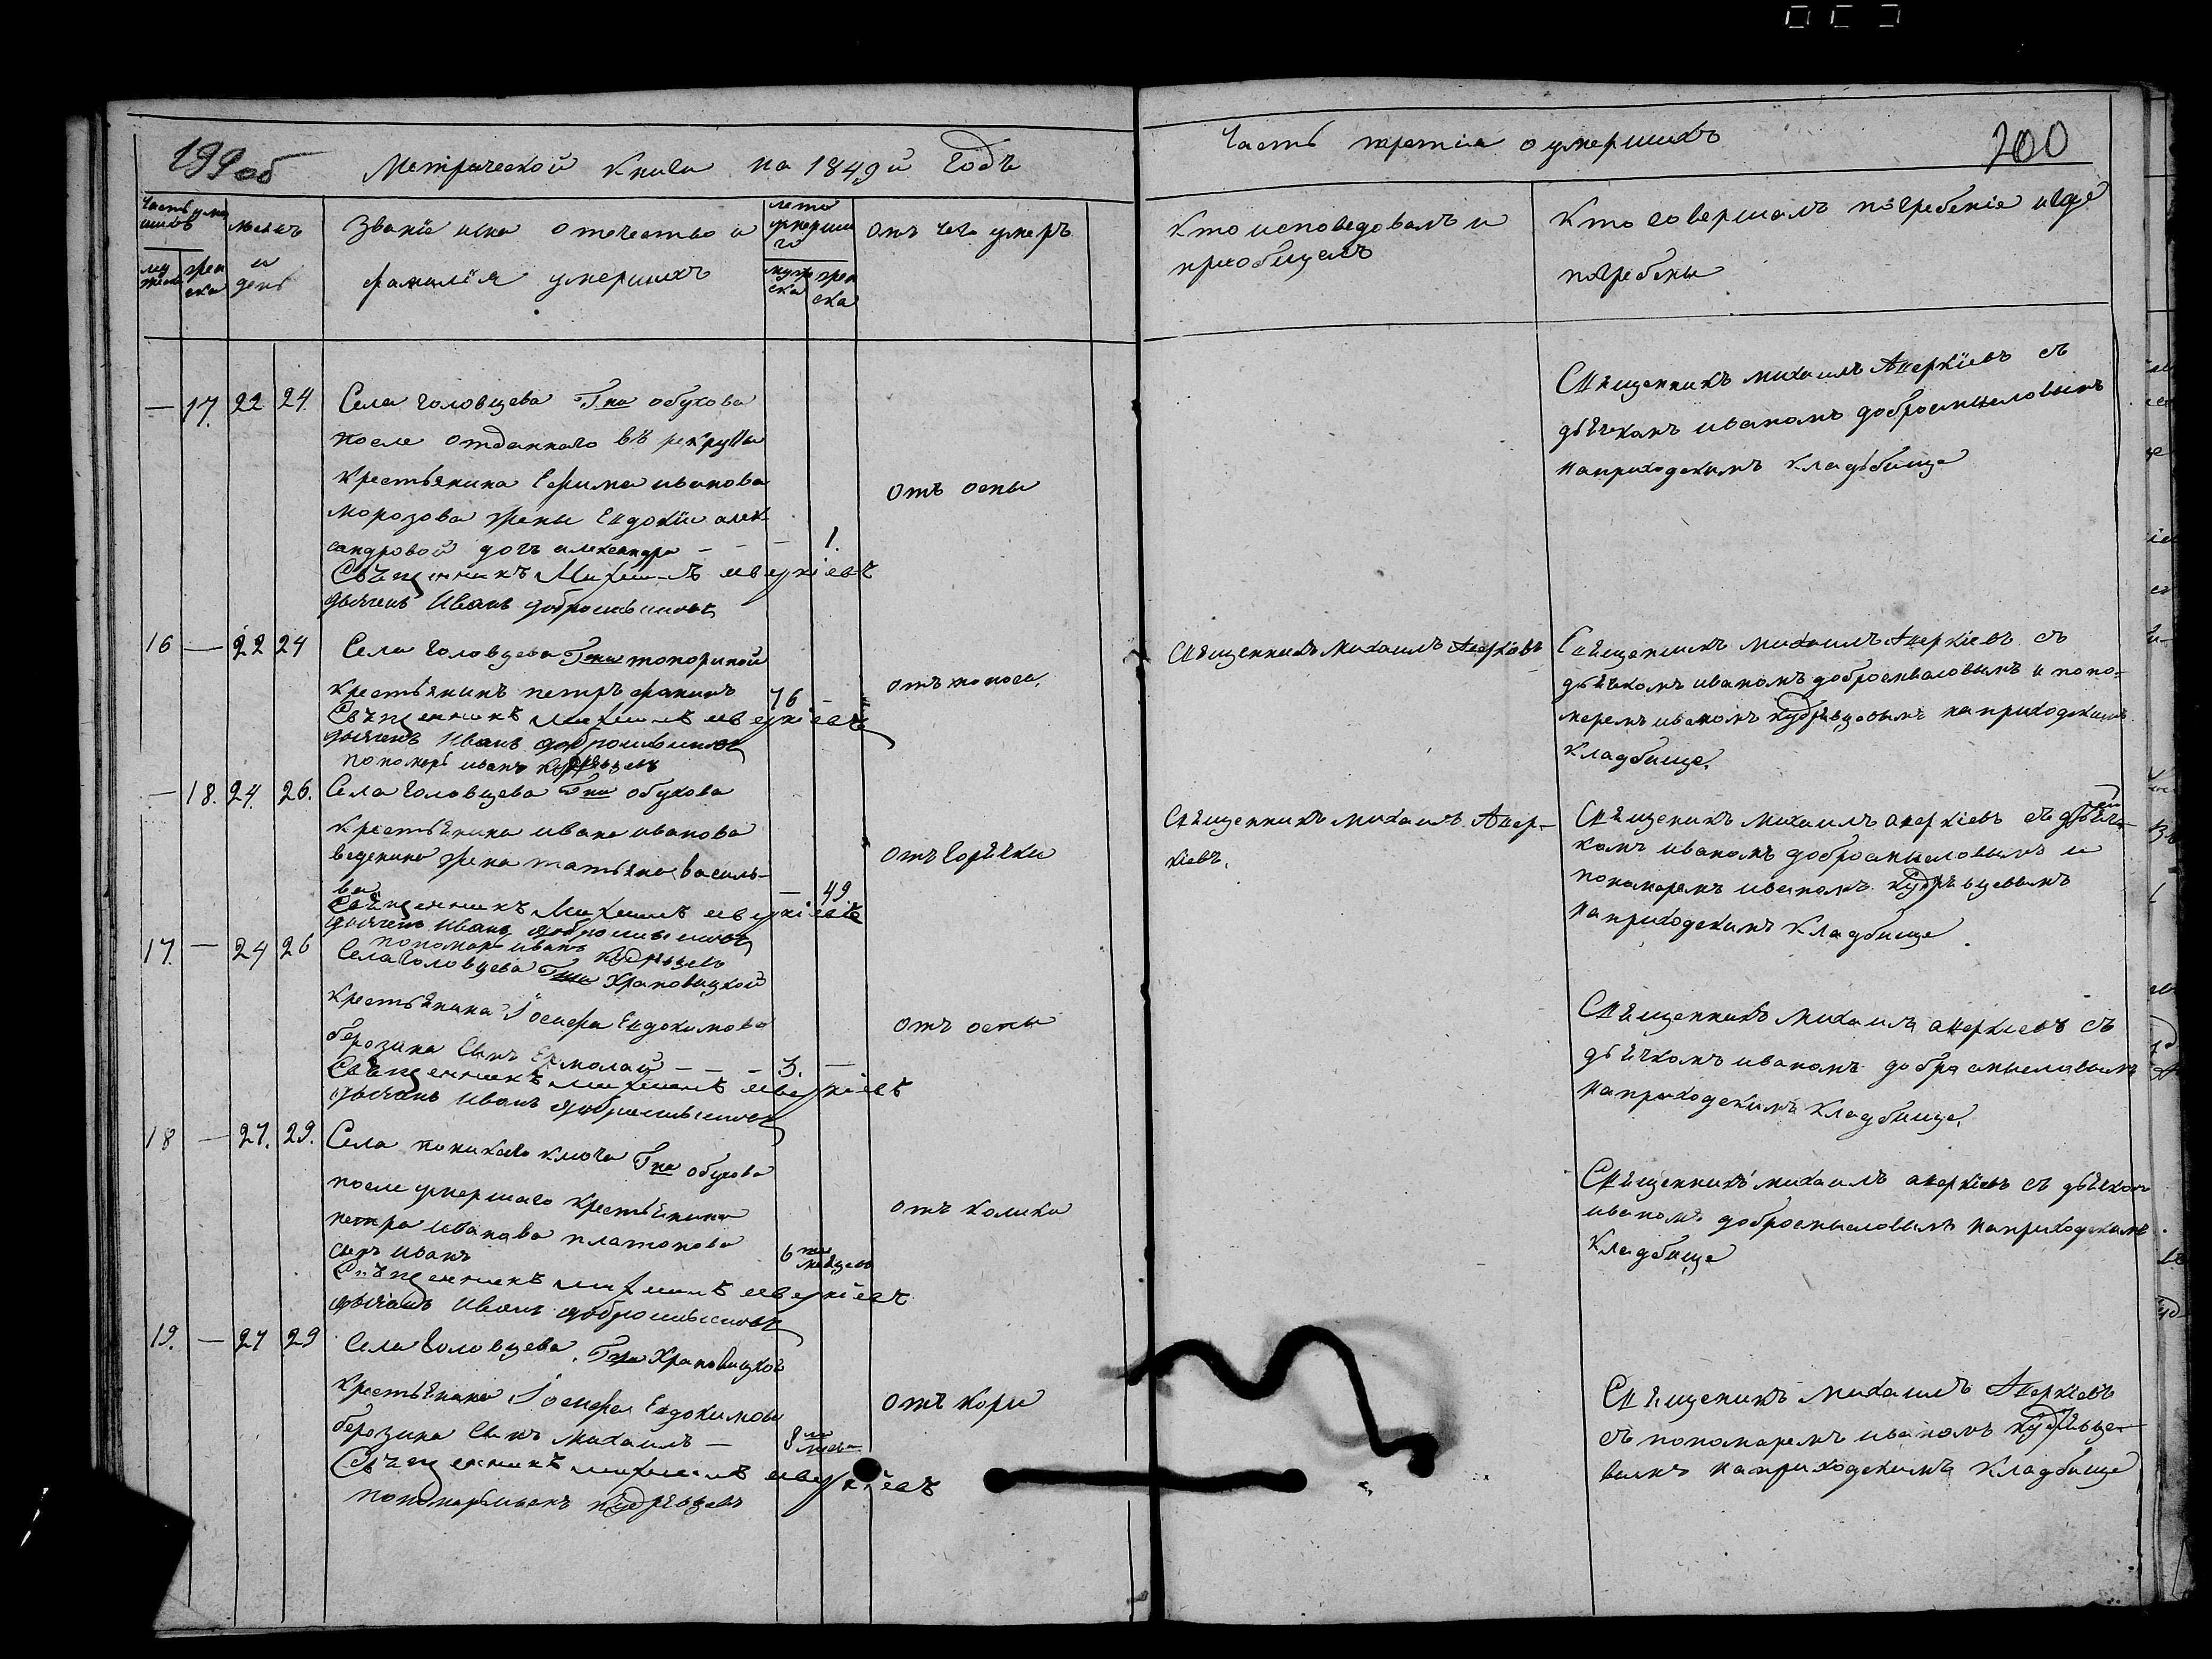 199 об
Метрической Книги на 1849й Годъ
Часть третiя о умершихъ
200
месецъ
и
день
Званiе имя отечество и
фамилiя умершихъ
лето
умерша
го
муже
ска
жен
ска
отъ чего умеръ
Кто исповедовалъ и
прiобщалъ
Кто совершалъ погребенiе и где
погребены
— 17. 22 24.
Села Головцева Гна обухова
после отданнаго въ рекруты
Крестьянина Ефима иванова
морозова жены Евдокiи алек
сандровой дочь александра — — — 1.
отъ оспы
Священникъ Михаилъ аверкiевъ
дьячекъ Иванъ добросмысловъ
Священникъ михаилъ Аверкiевъ съ
дьячкомъ иваномъ добросмысловымъ
наприходскимъ кладьбище
16 — 22 24
Села Головцева Гжи топориной
крестьянинъ петръ фанинъ 76 —
отъ поноса.
Священникъ михаилъ аверкiевъ
дьячекъ Иванъ добросмысловъ
пономарь иванъ кудрявцевъ
Священникъ Михаилъ Аверкiевъ
Священникъ михаилъ Аверкiевъ съ
дьячкомъ иваномъ добросмысловымъ и поно-
маремъ иваномъ кудрявцовымъ наприходскимъ
кладбище.
— 18. 24. 26.
Села Головцева Гна обухова
крестьянина ивана иванова
веденина жена татьяна василь-
ва — 49
отъ Горячки
Священникъ Михаилъ аверкiевъ
дьячекъ Иванъ добросмысловъ
пономарь иванъ кудрявцевъ
Священникъ михаилъ Авер-
кiевъ.
Священикъ михаилъ аверкiевъ съ дьяч-
комъ иваномъ добросмысловымъ и
пономаремъ иваномъ кудрявцевымъ
наприходскимъ кладбище
17. — 24 26
Села Головцева Гжи Храповицкой
крестьянина Iосифа Евдокимова
березина сынъ Ермолай — — — 3. —
отъ оспы
Священникъ михаилъ аверкiевъ
дьячекъ Иванъ добросмысловъ
Священникъ михаилъ аверкiевъ съ
дьячкомъ иваномъ добросмысловымъ
наприходскимъ кладбище.
18 — 27. 29.
Села поникаго ключа Гна обухова
после умершаго крестьянина
петра иванова платонова
сынъ иванъ 6ти месяцовъ
отъ колики
Священникъ михаилъ аверкiевъ
дьячекъ Иванъ добросмысловъ
Священникъ михаилъ аверкiевъ съ дьячкомъ
иваномъ добросмысловымъ наприходскимъ
кладбище
19. — 27 29
Села Головцева Гжи Храповицкой
крестьянина Iосифа Евдокимова
березина сынъ михаилъ —
отъ кори
Священникъ михаилъ аверкiевъ
пономарь иванъ кудрявцевъ
Священикъ михаилъ Аверкiевъ
съ пономаремъ иваномъ кудрявце-
вымъ наприходскимъ кладбище